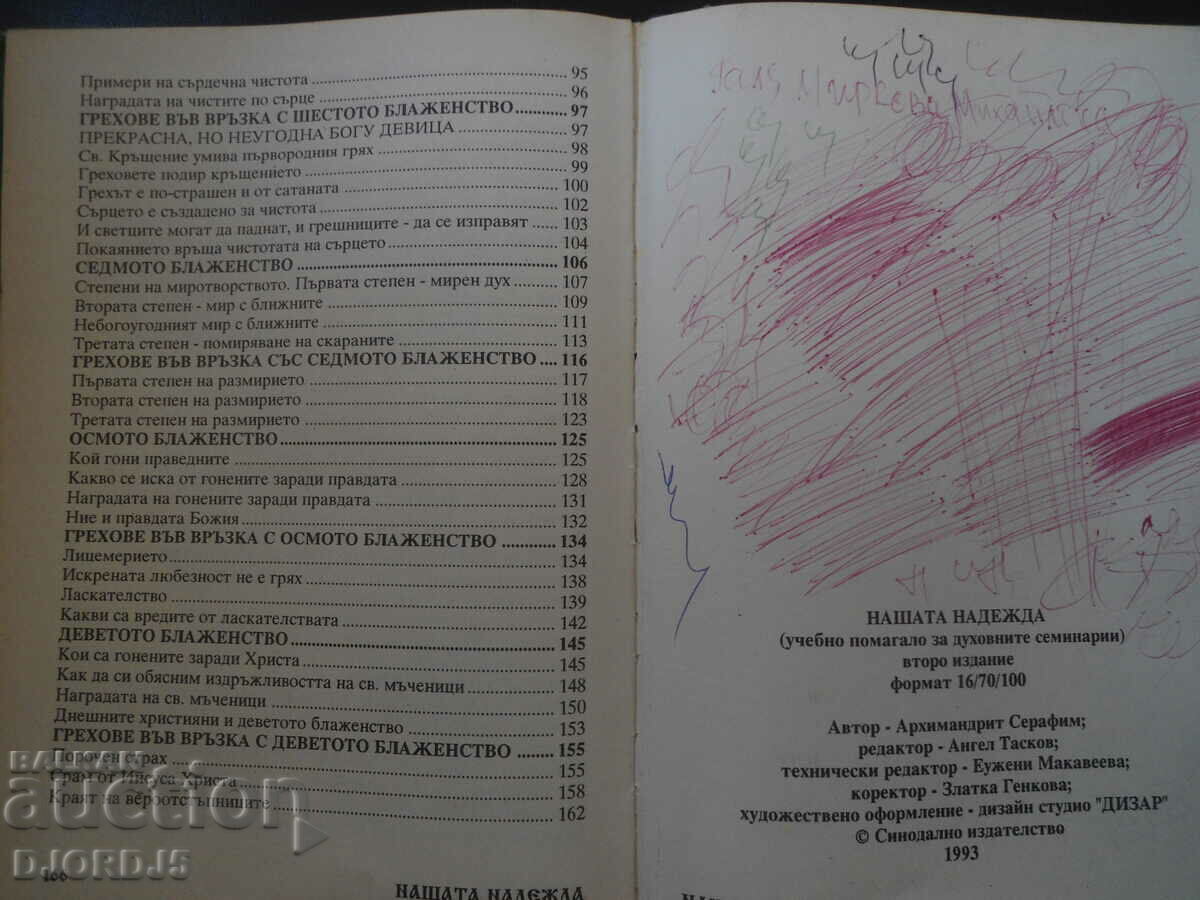 Примери на сърдечна чистота 95
Наградата на чистите по сърце 96
ГРЕХОВЕ ВЪВ ВРЪЗКА С ШЕСТОТО БЛАЖЕНСТВО 97
ПРЕКРАСНА, НО НЕУГОДНА БОГУ ДЕВИЦА 97
Св. Кръщение умива първородния грях 98
Греховете подир кръщението 99
Грехът е по-страшен и от сатаната 100
Сърцето е създадено за чистота 102
И светците могат да паднат, и грешниците - да се изправят 103
Покаянието връща чистотата на сърцето 104
СЕДМОТО БЛАЖЕНСТВО 106
Степени на миротворството. Първата степен - мирен дух 107
Втората степен - мир с ближните 109
Небогоугодният мир с ближните 111
Третата степен - помиряване на скараните 113
ГРЕХОВЕ ВЪВ ВРЪЗКА СЪС СЕДМОТО БЛАЖЕНСТВО 116
Първата степен на размирието 117
Втората степен на размирието 118
Третата степен на размирието 123
ОСМОТО БЛАЖЕНСТВО 125
Кой гони праведните 125
Какво се иска от гонените заради правдата 128
Наградата на гонените заради правдата 131
Ние и правдата Божия 132
ГРЕХОВЕ ВЪВ ВРЪЗКА С ОСМОТО БЛАЖЕНСТВО 134
Лицемерието 134
Искрената любезност не е грях 138
Ласкателство 139
Какви са вредите от ласкателствата 142
ДЕВЕТОТО БЛАЖЕНСТВО 145
Кои са гонените заради Христа 145
Как да си обясним издръжливостта на св. мъченици 148
Наградата на св. мъченици 150
Днешните християни и деветото блаженство 153
ГРЕХОВЕ ВЪВ ВРЪЗКА С ДЕВЕТОТО БЛАЖЕНСТВО 155
Порочен страх 155
Срам от Иисуса Христа 158
Краят на вероотстъпниците 162
166
НАШАТА НАДЕЖДА
НАШАТА НАДЕЖДА
(учебно помагало за духовните семинарии)
второ издание
формат 16/70/100
Автор - Архимандрит Серафим;
редактор - Ангел Тасков;
технически редактор - Еужени Макавеева;
коректор - Златка Генкова;
художествено оформление - дизайн студио "ДИЗАР"
© Синодално издателство
1993
БАЛКАН
auction
DJORDJ5